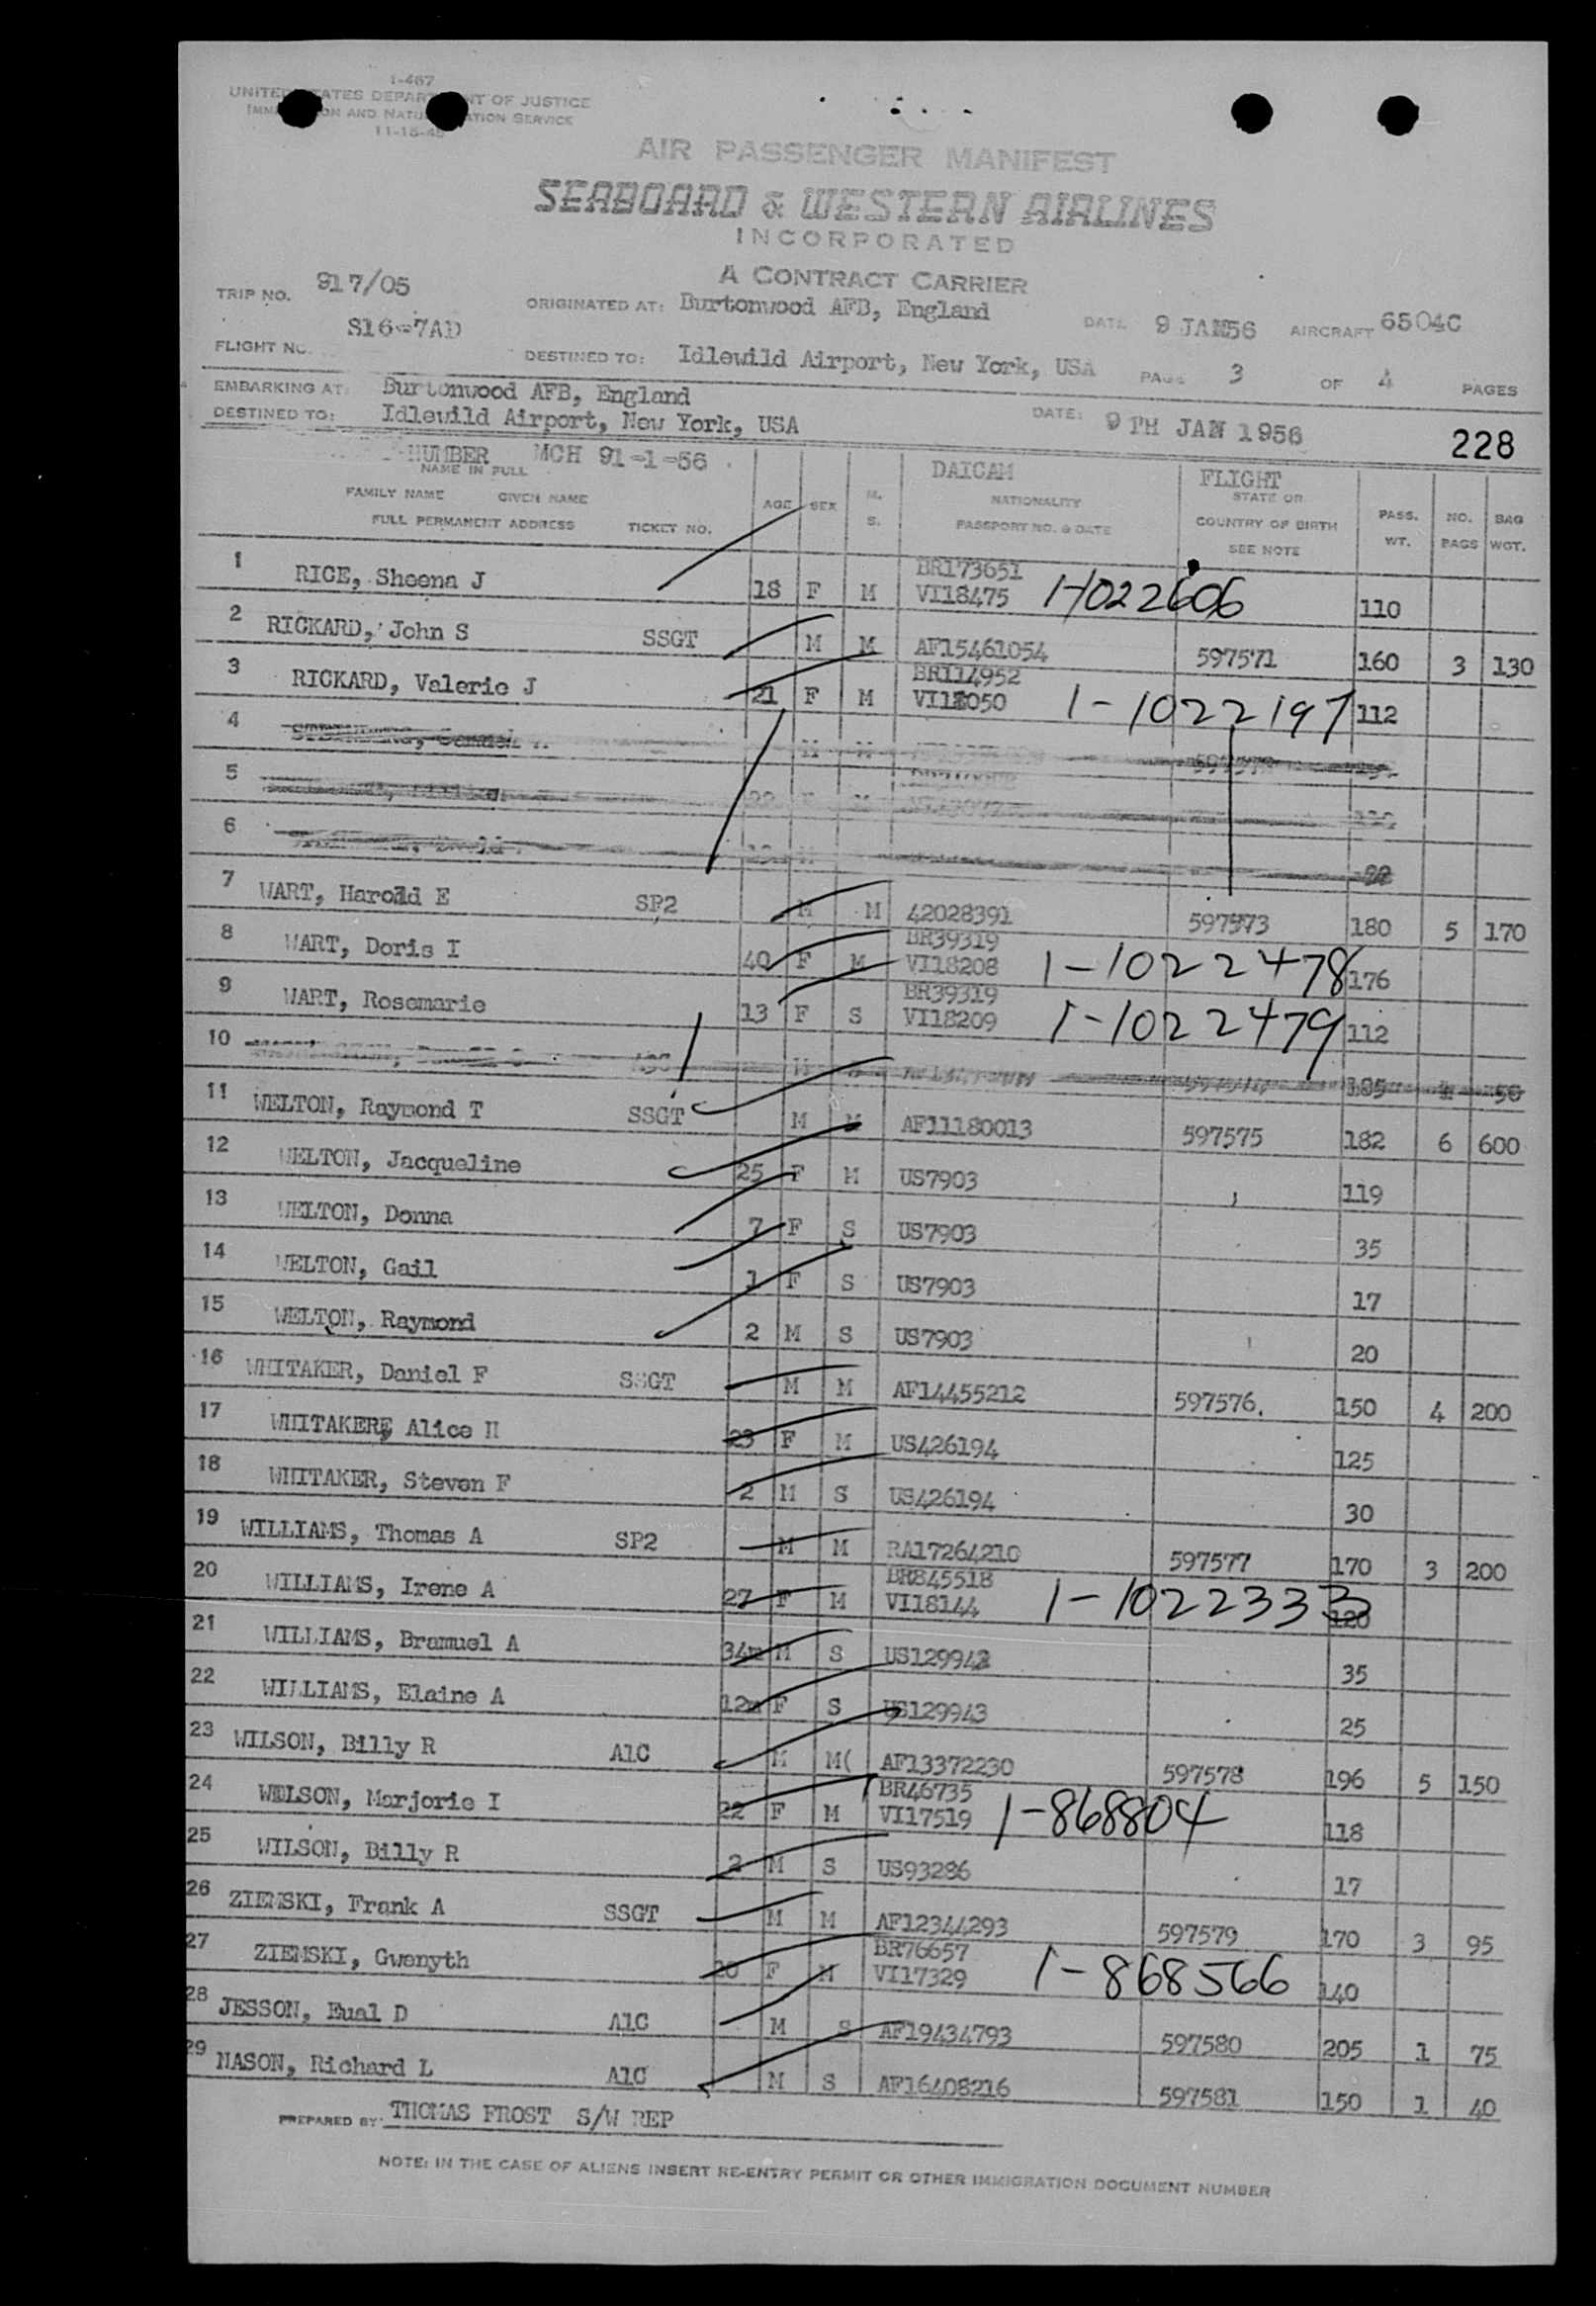 I-467
UNITED STATES DEPARTMENT OF JUSTICE
IMMIGRATION AND NATURALIZATION SERVICE
11-15-45
AIR PASSENGER MANIFEST
SEABOARD & WESTERN AIRLINES
INCORPORATED
A CONTRACT CARRIER
TRIP NO. 917/05 ORIGINATED AT: Burtonwood AFB, England DATE 9 JAN56 AIRCRAFT 6504C
S16-7AD
FLIGHT NO. DESTINED TO: Idlewild Airport, New York, USA PAGE 3 OF 4 PAGES
EMBARKING AT: Burtonwood AFB, England
DESTINED TO: Idlewild Airport, New York, USA DATE: 9TH JAN 1956
228
NUMBER MCH 91-1-56 DAICAM FLIGHT
NAME IN FULL
FAMILY NAME GIVEN NAME AGE SEX M. S. NATIONALITY STATE OR PASS. WT. NO. PAGS BAG WGT.
FULL PERMANENT ADDRESS TICKET NO. PASSPORT NO. & DATE COUNTRY OF BIRTH
SEE NOTE
BR173651
1 RICE, Sheena J 18 F M VI18475 1-1022606 110
2 RICKARD, John S SSGT M M AF15461054 597571 160 3 130
BR114952
3 RICKARD, Valerie J 21 F M 1-1022197 112
4
5
6
7 WART, Harold E SP2 M M 42028391 597573 180 5 170
BR39319
8 WART, Doris I 40 F M VI18208 1-1022478 176
BR39319
9 WART, Rosemarie 13 F S VI18209 1-1022479 112
10 185 50
11 WELTON, Raymond T SSGT M M AF11180013 597575 182 6 600
12 WELTON, Jacqueline 25 F M US7903 119
13 WELTON, Donna 7 F S US7903 35
14 WELTON, Gail 1 F S US7903 17
15 WELTON, Raymond 2 M S US7903 20
16 WHITAKER, Daniel F SSGT M M AF14455212 597576. 150 4 200
17 WHITAKER, Alice H 23 F M US426194 125
18 WHITAKER, Steven F 2 M S US426194 30
19 WILLIAMS, Thomas A SP2 M M RA17264210 597577 170 3 200
BR845518
20 WILLIAMS, Irene A 27 F M VI18144 1-1022333 120
21 WILLIAMS, Bramuel A 34m M S US129943 35
22 WILLIAMS, Elaine A 12m F S US129943 25
23 WILSON, Billy R A1C M M( AF13372230 597578 196 5 150
BR46735
24 WILSON, Marjorie I 22 F M VI17519 1-868804 118
25 WILSON, Billy R 2 M S US93286 17
26 ZIEMSKI, Frank A SSGT M M AF12344293 597579 170 3 95
BR76657
27 ZIEMSKI, Gwenyth 20 F M VI17329 1-868566 140
28 JESSON, Eual D A1C M S AF19434793 597580 205 1 75
29 NASON, Richard L A1C M S AF16408216 597581 150 1 40
PREPARED BY: THOMAS FROST S/W REP
NOTE: IN THE CASE OF ALIENS INSERT RE-ENTRY PERMIT OR OTHER IMMIGRATION DOCUMENT NUMBER